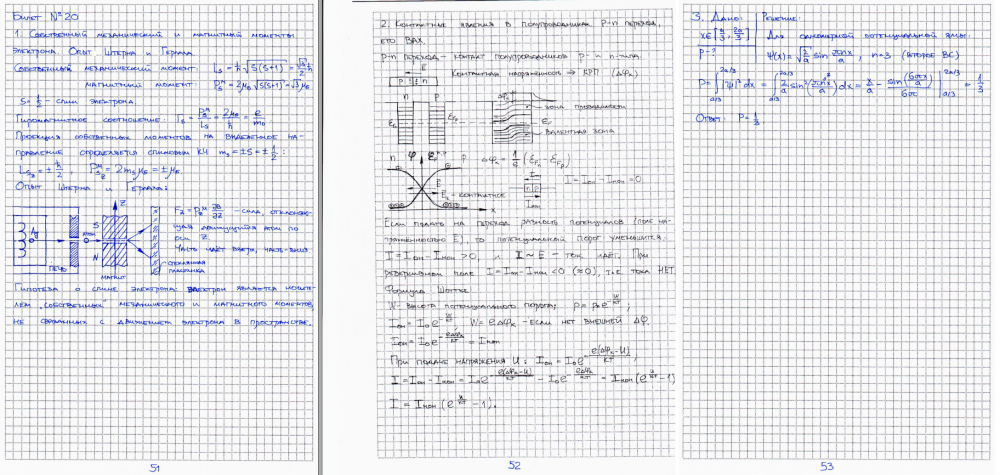 Билет №20
1. Собственный механический и магнитный моменты
электрона. Опыт Штерна и Герлаха.
Собственный механический момент: Ls = ħ√S(S+1) = √3/2 ħ
магнитный момент: Psᵐ = 2μБ√S(S+1) = √3 μБ
S = 1/2 - спин электрона.
Гиромагнитное соотношение: Гs = Psᵐ/Ls = 2μБ/ħ = e/m₀
Проекция собственных моментов на выделенное на-
правление определяется спиновым КЧ ms = ±S = ±1/2 :
Lsz = ±ħ/2, Pszᵐ = 2msμБ = ±μБ.
Опыт Штерна и Герлаха:
Ag
атом
S
N
Z
печь
магнит
стеклянная
пластинка
Fz = Pzᵐ ∂B/∂z - сила, отклоняю-
щая движущийся атом по
оси Z.
Часть идёт вверх, часть-вниз.
Гипотеза о спине электрона: электрон является носите-
лем „собственных" механического и магнитного моментов,
не связанных с движением электрона в пространстве.
51
2. Контактные явления в полупроводниках. P-n переход,
его ВАХ.
P-n переход - контакт полупроводников p- и n-типа.
Контактная напряжённость ⇒ КРП (Δφк)
зона проводимости
валентная зона
Δφк = 1/e (EFn - EFp)
Eк - контактное
I = Iон - Iнон = 0
Если подать на переход разность потенциалов (поле на-
пряжённостью E), то потенциальный порог уменьшится.
I = Iон - Iнон > 0, и I ~ E - ток идёт. При
реверсивном поле I = Iон - Iнон < 0 (≈0), т.е. тока нет.
Формула Шоттки.
W - высота потенциального порога;
Iон = I₀e^(-W/кт), W = eΔφк - если нет внешней Δφ.
Iон = I₀e^(-eΔφк/кт) = Iнон
При подаче напряжения U: Iон = I₀e^(-e(Δφк-U)/кт);
I = Iон - Iнон = I₀e^(-e(Δφк-U)/кт) - I₀e^(-eΔφк/кт) = Iнон(e^(U/кт) - 1)
I = Iнон(e^(U/кт) - 1).
52
3. Дано:
x∈[a/3, 2a/3]
P-?
Решение:
Для одномерной потенциальной ямы:
Ψ(x) = √2/a sin πnx/a, n=3 (второе ВС)
P = ∫a/3^2a/3 |Ψ|² dx = ∫a/3^2a/3 2/a sin²(πnx/a) dx = x/a - sin(6πx/a)/6π |a/3^2a/3 = 1/3
Ответ: P = 1/3
53